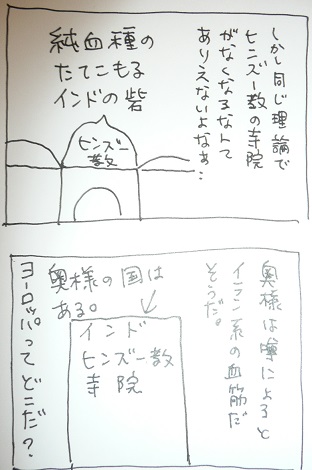 しかし同じ理論で
ヒンズー教の寺院
がなくなるなんて
ありえないよなぁ…
純血種の
たてこもる
インドの砦
ヒンズー
教
奥様は噂によると
イラン系の血筋だ
そうだ。
奥様の国は
ある。
インド
ヒンズー教
寺院
ヨーロッパってどこだ？